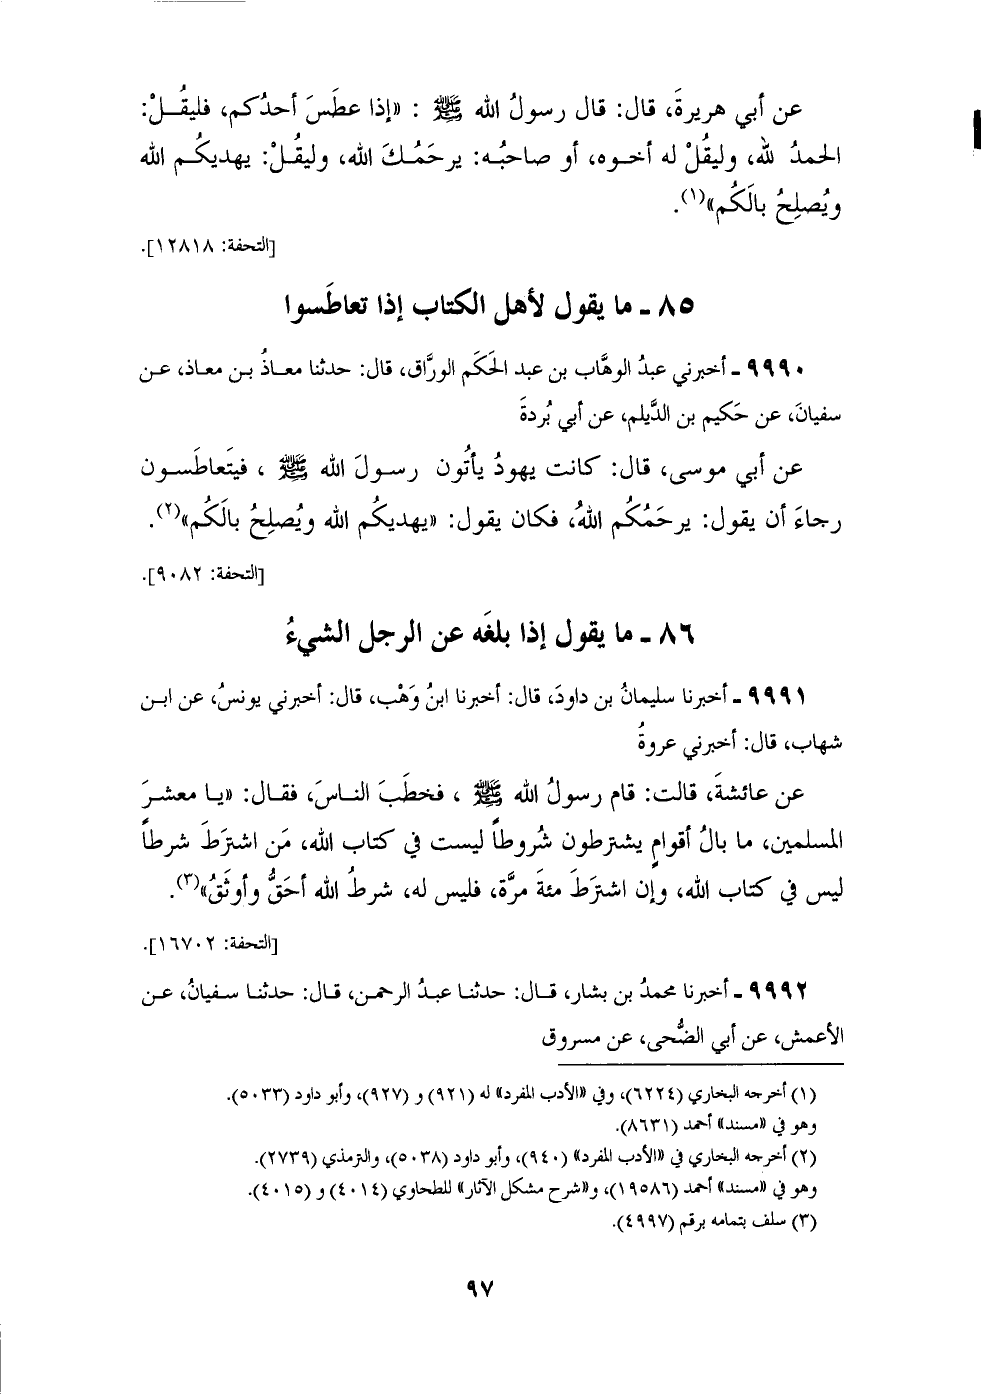 عن أبي هريرةَ، قال: قال رسولُ الله ﷺ : «إذا عطَسَ أحدُكم، فليقُـلْ:
الحمدُ لله، وليقُلْ له أخـوه، أو صاحبُـه: يرحَمُـكَ الله، وليقُـلْ: يهديكُـم الله
ويُصلِحُ بالَكُم»(١).
[التحفة: ١٢٨١٨].
٨٥ ـ ما يقول لأهل الكتاب إذا تعاطَسوا
٩٩٩٠ ـ أخبرني عبدُ الوهَّاب بن عبد الحَكَم الورَّاق، قال: حدثنا معـاذُ بـن معـاذ، عـن
سفيانَ، عن حَكيم بن الدَّيلم، عن أبي بُردةَ
عن أبي موسى، قال: كانت يهودُ يأتُون رسـولَ الله ﷺ ، فيَتعاطَسـون
رجاءَ أن يقول: يرحَمُكُم اللهُ، فكان يقول: «يهديكُم الله ويُصلِحُ بالَكُم»(٢).
[التحفة: ٩٠٨٢].
٨٦ ـ ما يقول إذا بلغَه عن الرجل الشيءُ
٩٩٩١ ـ أخبرنا سليمانُ بن داودَ، قال: أخبرنا ابنُ وَهْب، قال: أخبرني يونسُ، عن ابـن
شهاب، قال: أخبرني عروةُ
عن عائشةَ، قالت: قام رسولُ الله ﷺ ، فخطَبَ النـاسَ، فقـال: «يـا معشـرَ
المسلمين، ما بالُ أقوامٍ يشترطون شُروطاً ليست في كتاب الله، مَن اشترَطَ شرطاً
ليس في كتاب الله، وإن اشترَطَ مئةَ مرَّة، فليس له، شرطُ الله أحَقُّ وأوثَقُ»(٣).
[التحفة: ١٦٧٠٢].
٩٩٩٢ ـ أخبرنا محمدُ بن بشار، قـال: حدثنـا عبـدُ الرحمـن، قـال: حدثنـا سـفيانُ، عـن
الأعمش، عن أبي الضُّحى، عن مسروق
(١) أخرجه البخاري (٦٢٢٤)، وفي «الأدب المفرد» له (٩٢١) و (٩٢٧)، وأبو داود (٥٠٣٣).
وهو في «مسند» أحمد (٨٦٣١).
(٢) أخرجه البخاري في «الأدب المفرد» (٩٤٠)، وأبو داود (٥٠٣٨)، والترمذي (٢٧٣٩).
وهو في «مسند» أحمد (١٩٥٨٦)، و«شرح مشكل الآثار» للطحاوي (٤٠١٤) و (٤٠١٥).
(٣) سلف بتمامه برقم (٤٩٩٧).
٩٧